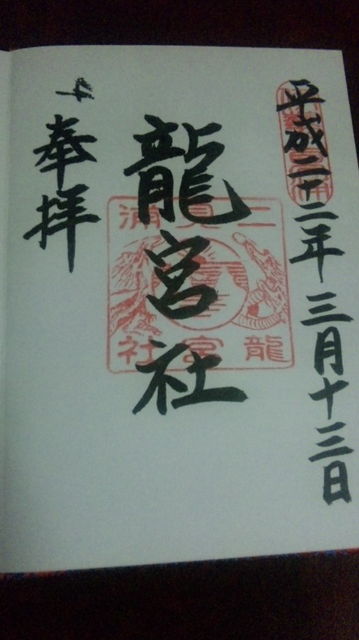 平成二十二年三月十三日
龍宮社
二見浦
龍宮社
奉拝